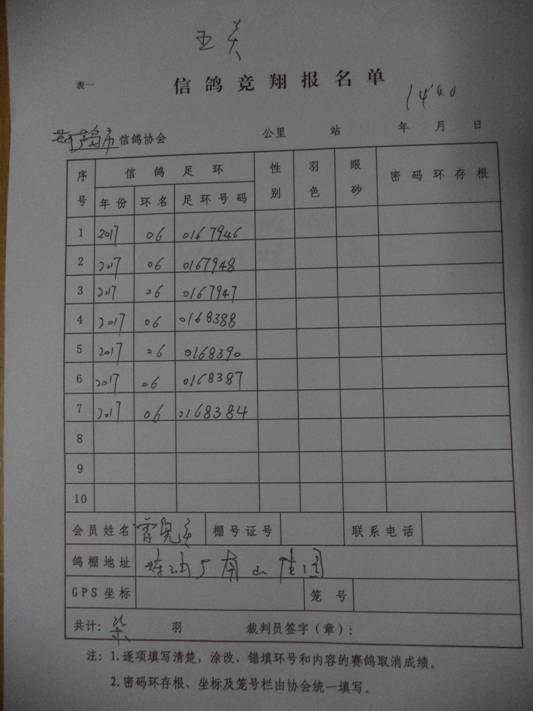 五关
信鸽竞翔报名单
表一
1400
葫芦岛市信鸽协会 公里 站 年 月 日
序号 信鸽足环 性别 羽色 眼砂 密码环存根
年份 环名 足环号码
1 2017 06 0167946
2 2017 06 0167948
3 2017 06 0167947
4 2017 06 0168388
5 2017 06 0168390
6 2017 06 0168387
7 2017 06 0168384
8
9
10
会员姓名 棚号证号 联系电话
鸽棚地址 炼油厂南山花园
GPS坐标 笼号
共计: 柒 羽 裁判员签字(章):
注: 1.逐项填写清楚,涂改、错填环号和内容的赛鸽取消成绩。
2.密码环存根、坐标及笼号栏由协会统一填写。